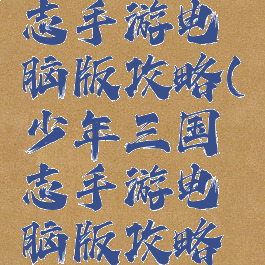 志手游电
脑版攻略(
少年三国
志手游电
脑版攻略